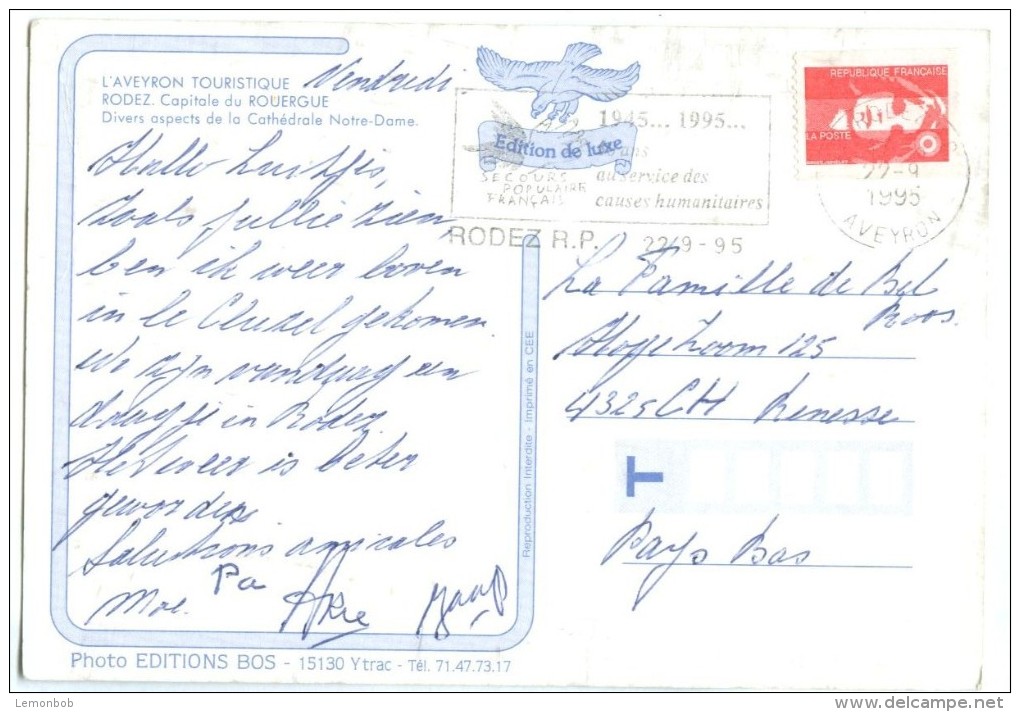 L'AVEYRON TOURISTIQUE
RODEZ. Capitale du ROUERGUE
Divers aspects de la Cathédrale Notre-Dame.
Vendredi
Hallo Luitjes,
Zoals jullie zien
ben ik weer boven
in le Cluzel gekomen.
We zijn vandaag een
dagje in Rodez.
Het weer is beter
geworden.
Salutions amicales
Moe. Pa
Jaap
Edition de luxe
1945... 1995...
ans
au service des
causes humanitaires
SECOURS
POPULAIRE
FRANÇAIS
RODEZ R.P. 22-9-95
REPUBLIQUE FRANÇAISE
LA POSTE
22-9
1995
AVEYRON
La Famille de Bel
Roos.
Hogezoom 125
4325CH Renesse
T
Pays Bas
Reproduction Interdite - Imprimé en CEE
Photo EDITIONS BOS - 15130 Ytrac - Tél. 71.47.73.17
Lemonbob
www.delcampe.net